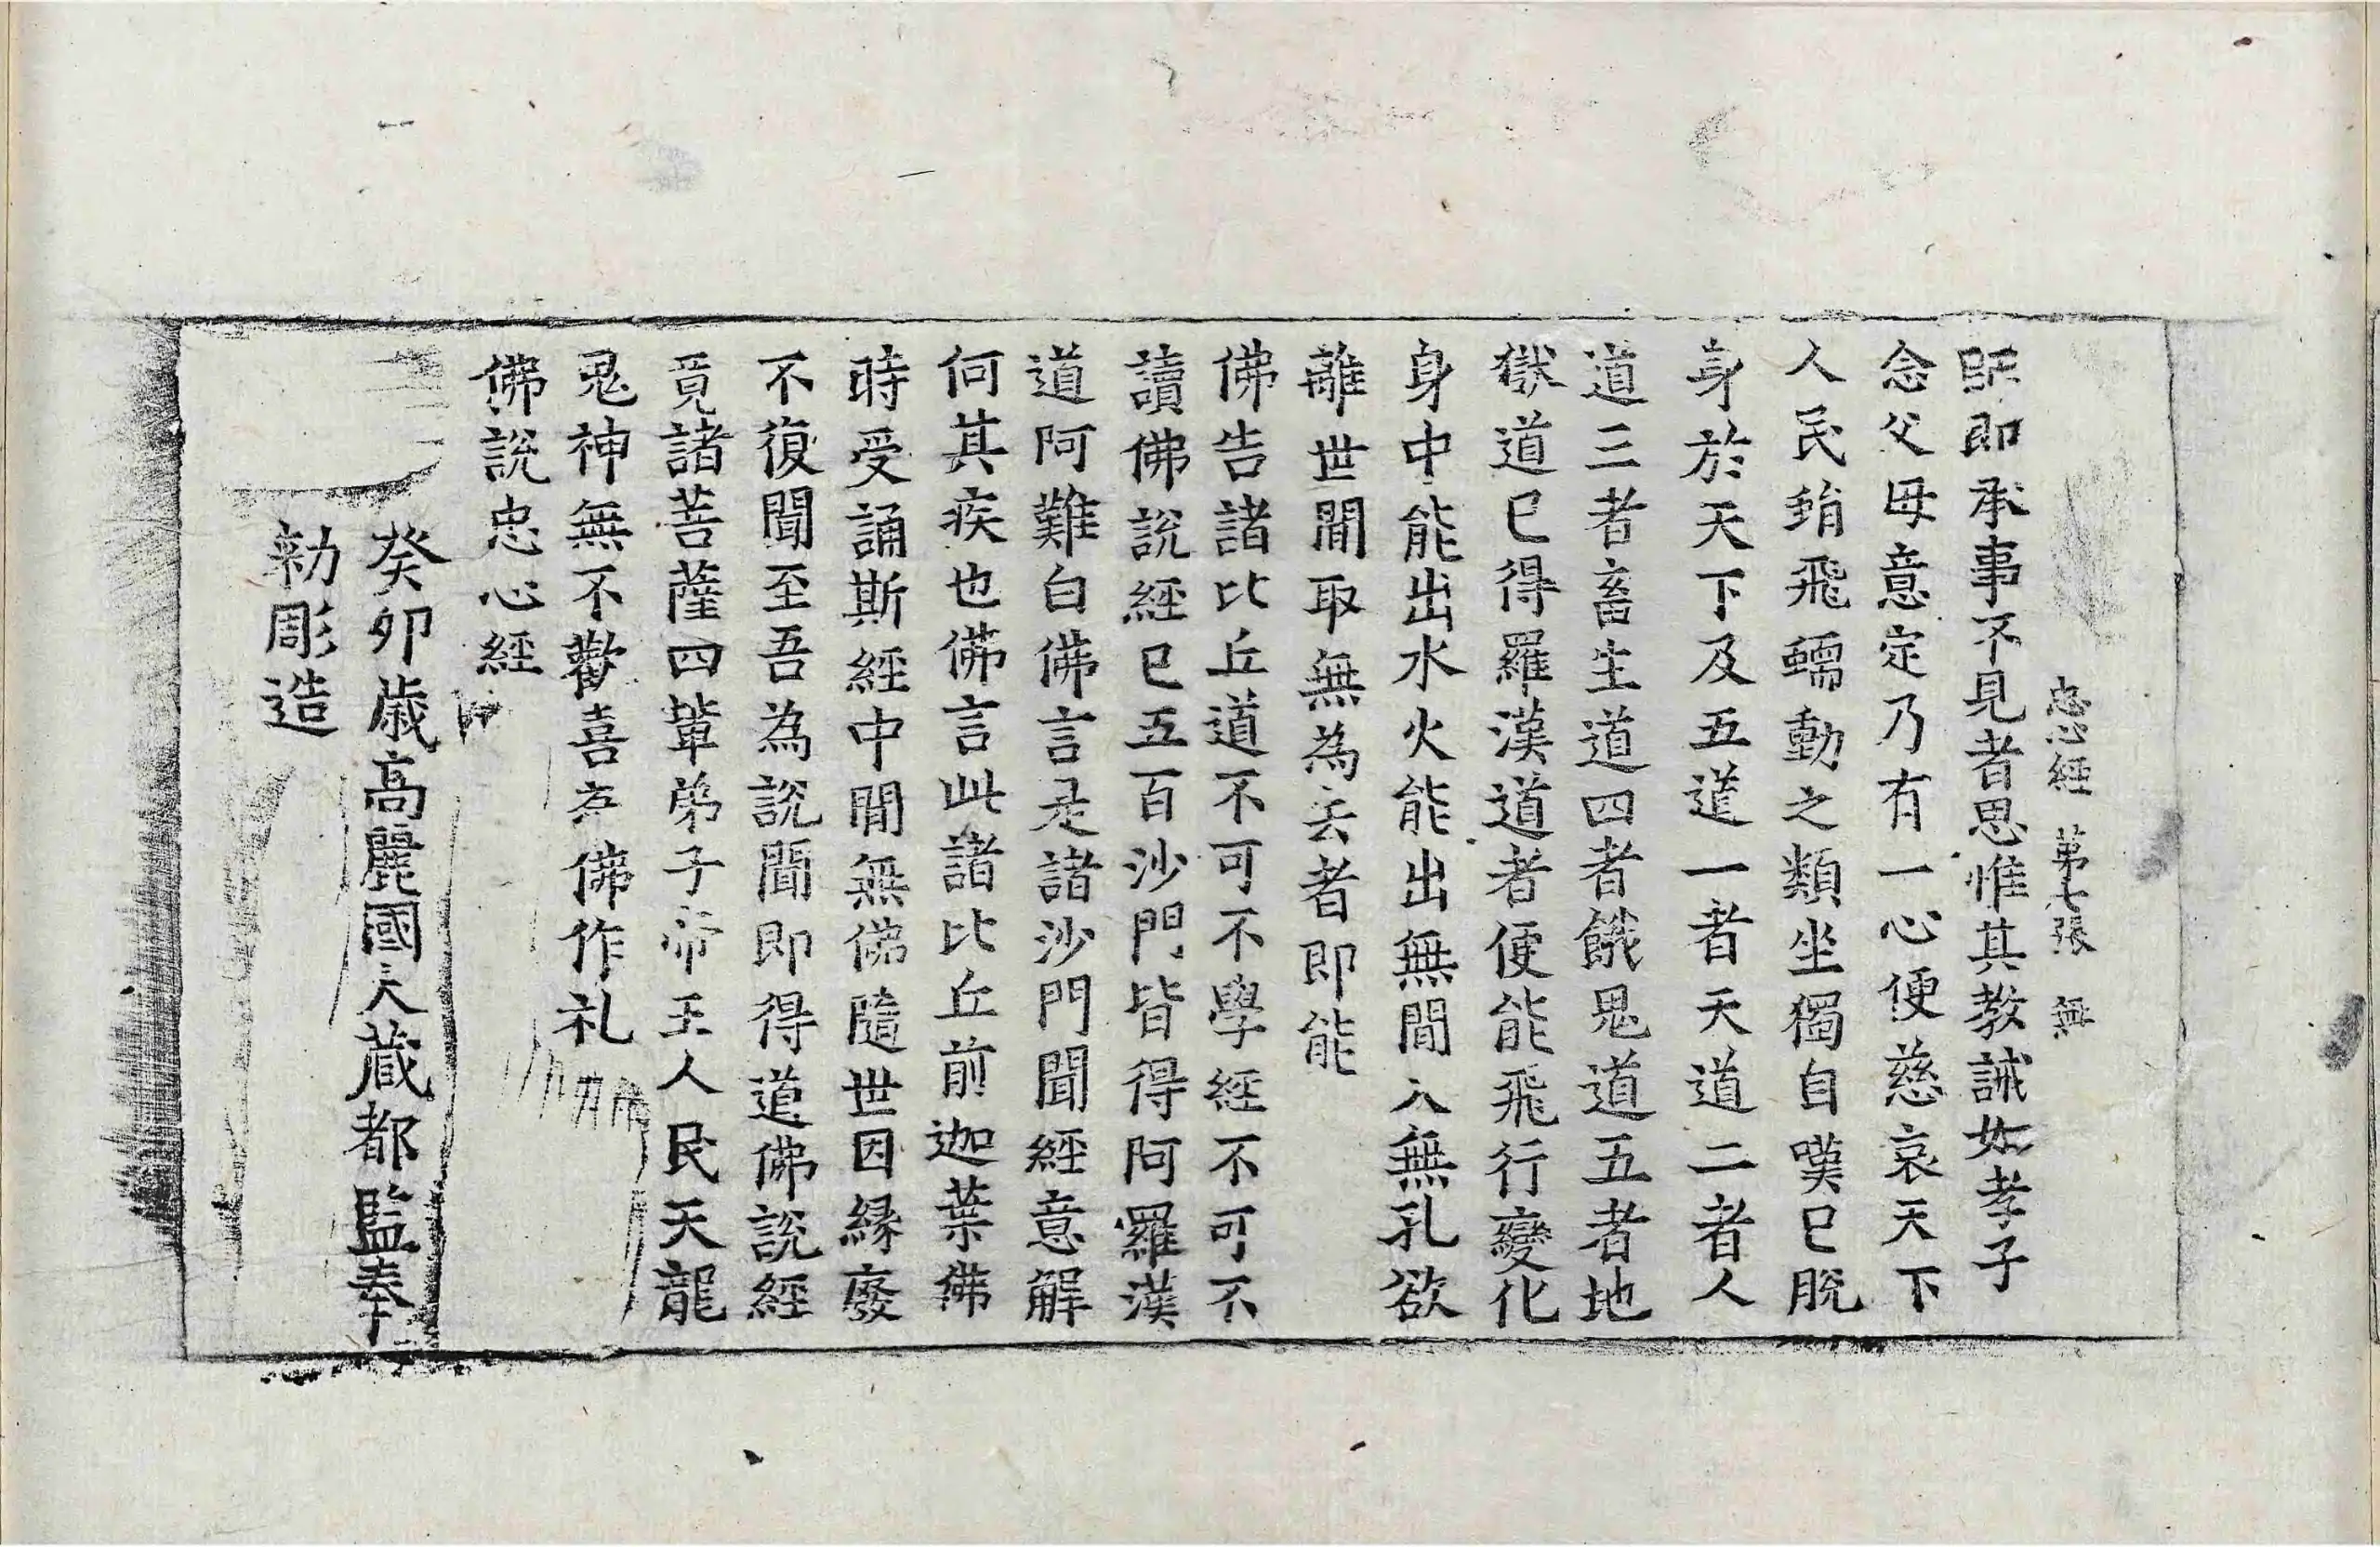 忠心經 第七張 無
即承事不見者思惟其教誡如孝子
念父母意定乃有一心便慈哀天下
人民蜎飛蠕動之類坐獨自嘆已脫
身於天下及五道一者天道二者人
道三者畜生道四者餓鬼道五者地
獄道已得羅漢道者便能飛行變化
身中能出水火能出無間入無孔欲
離世間取無為去者即能
佛告諸比丘道不可不學經不可不
讀佛說經已五百沙門皆得阿羅漢
道阿難白佛言是諸沙門聞經意解
何其疾也佛言此諸比丘前迦葉佛
時受誦斯經中間無佛隨世因緣廢
不復聞至吾為說聞即得道佛說經
竟諸菩薩四輩弟子帝王人民天龍
鬼神無不歡喜為佛作礼
佛說忠心經
癸卯歲高麗國大藏都監奉
勅彫造